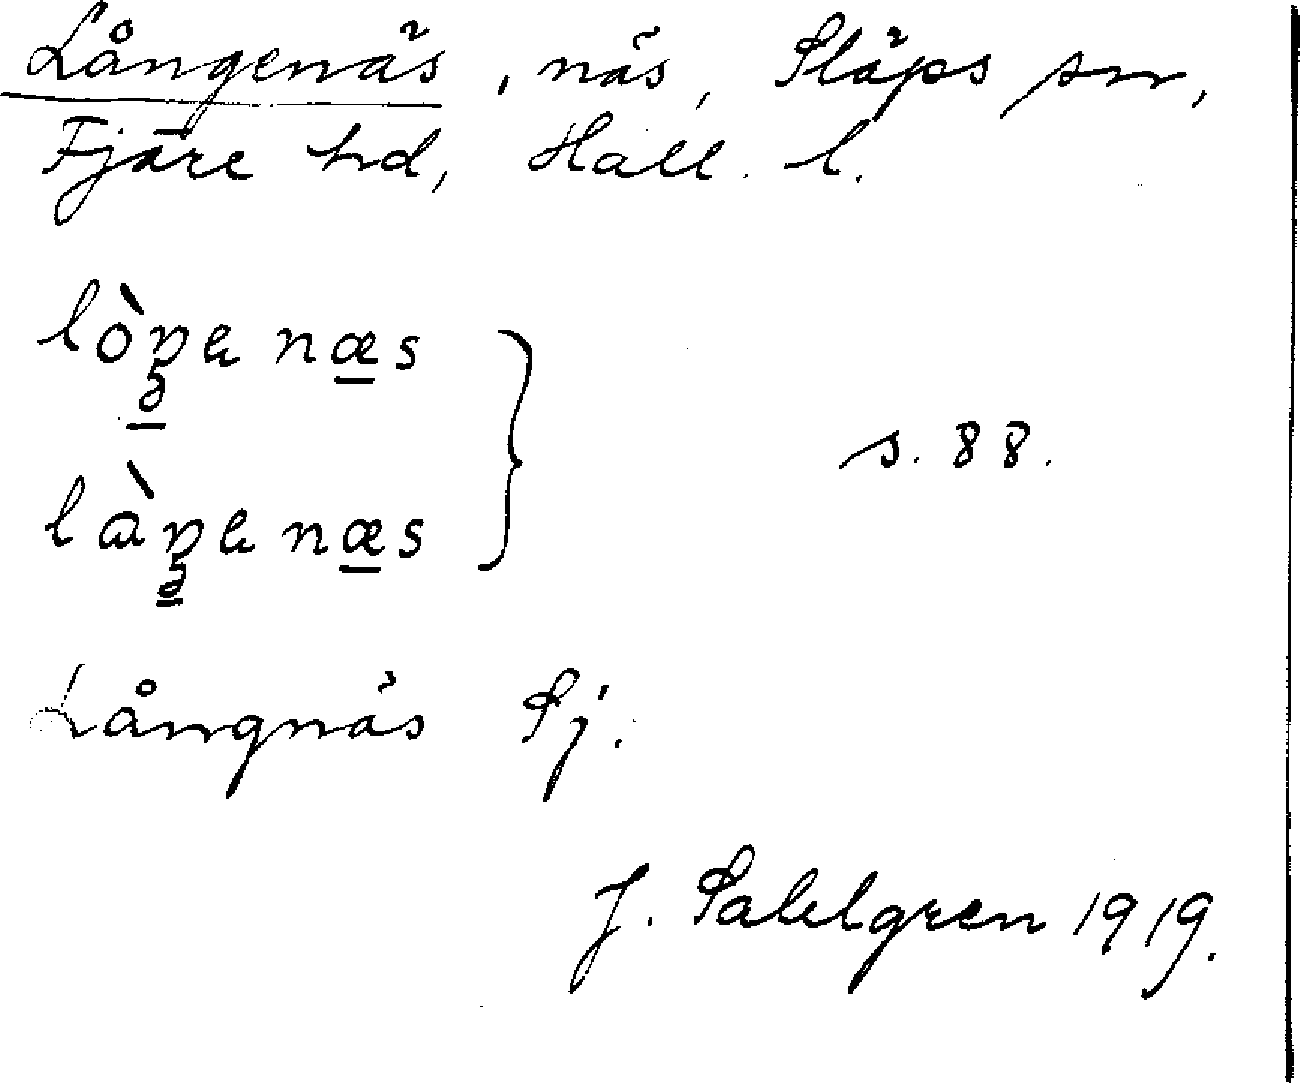 Långenäs, näs, Släps sn,
Fjäre hd, Hall. l.
lòŋɐ næs
s. 88.
làŋɐ næs
Långnäs Sj.
J. Sahlgren 1919.